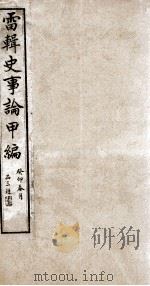 雷輯史事論甲編
癸卯春月